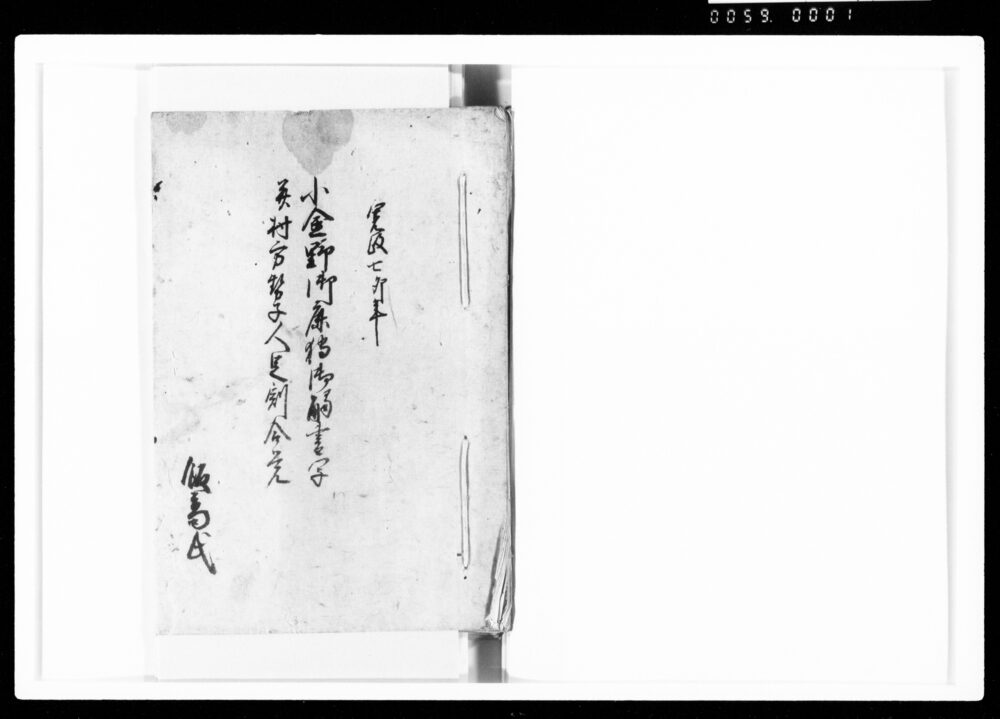 0059. 0001
寛政七卯年
小金野御鹿狩御触書写
并村方勢子人足割合覚
飯高氏